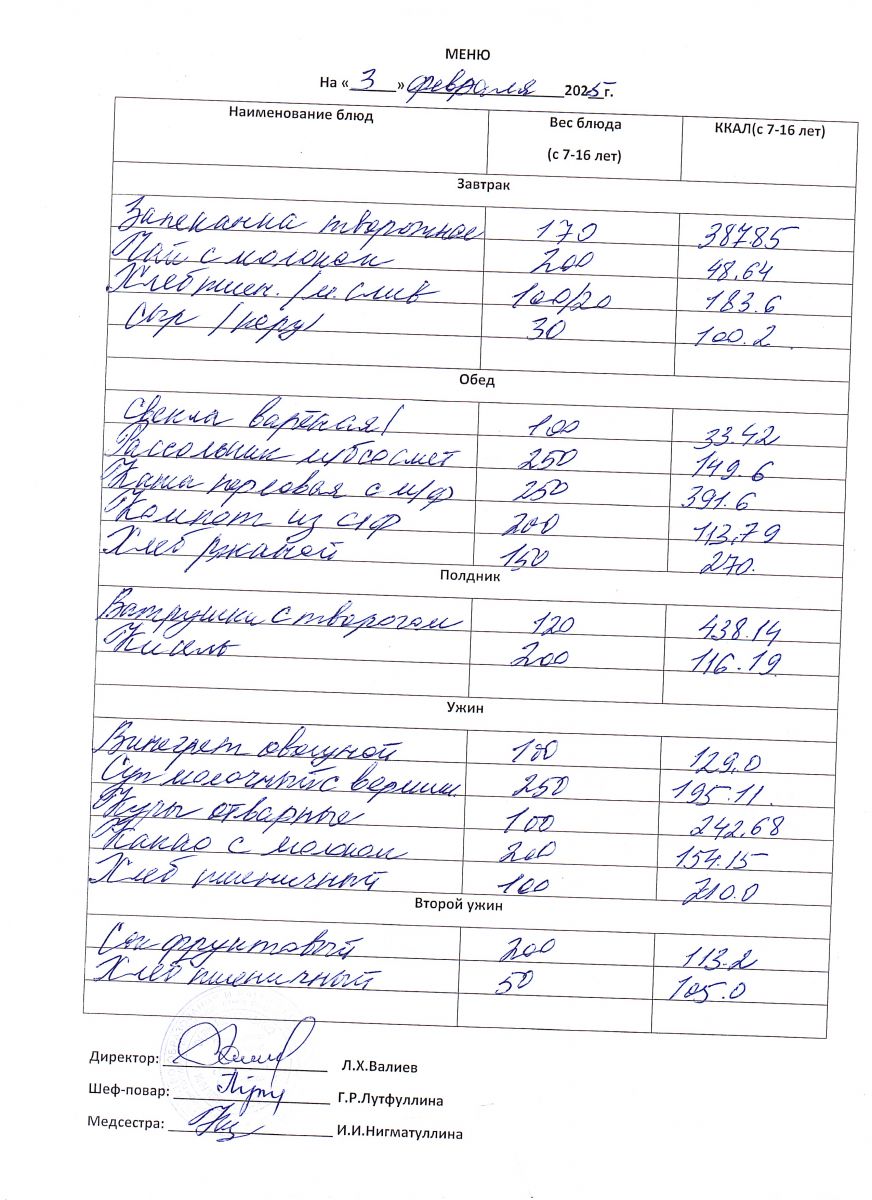 МЕНЮ
На « 3 » февраля 2025 г.
Наименование блюд Вес блюда (с 7-16 лет) ККАЛ(с 7-16 лет)
Завтрак
Запеканка творожная 170 387.85
Чай с молоком 200 48,64
Хлеб пшен. /м.слив 100/20 183.6
Сыр /пору/ 30 100.2
Обед
Свекла варёная/ 100 33.42
Рассольник 250 149.6
Каша перловая с м/ф 250 391.6
Компот из с/ф 200 113,79
Хлеб ржаной 150 270.
Полдник
Ватрушки с творогом 120 438.14
Кисель 200 116.19
Ужин
Винегрет овощной 100 129,0
Суп молочный с вермиш 250 195.11
Куры отварные 100 242,68
Какао с молоком 200 154.15
Хлеб пшеничный 100 210.0
Второй ужин
Сок фруктовый 200 113.2
Хлеб пшеничный 50 105.0
Директор: Л.Х.Валиев
Шеф-повар: Г.Р.Лутфуллина
Медсестра: И.И.Нигматуллина